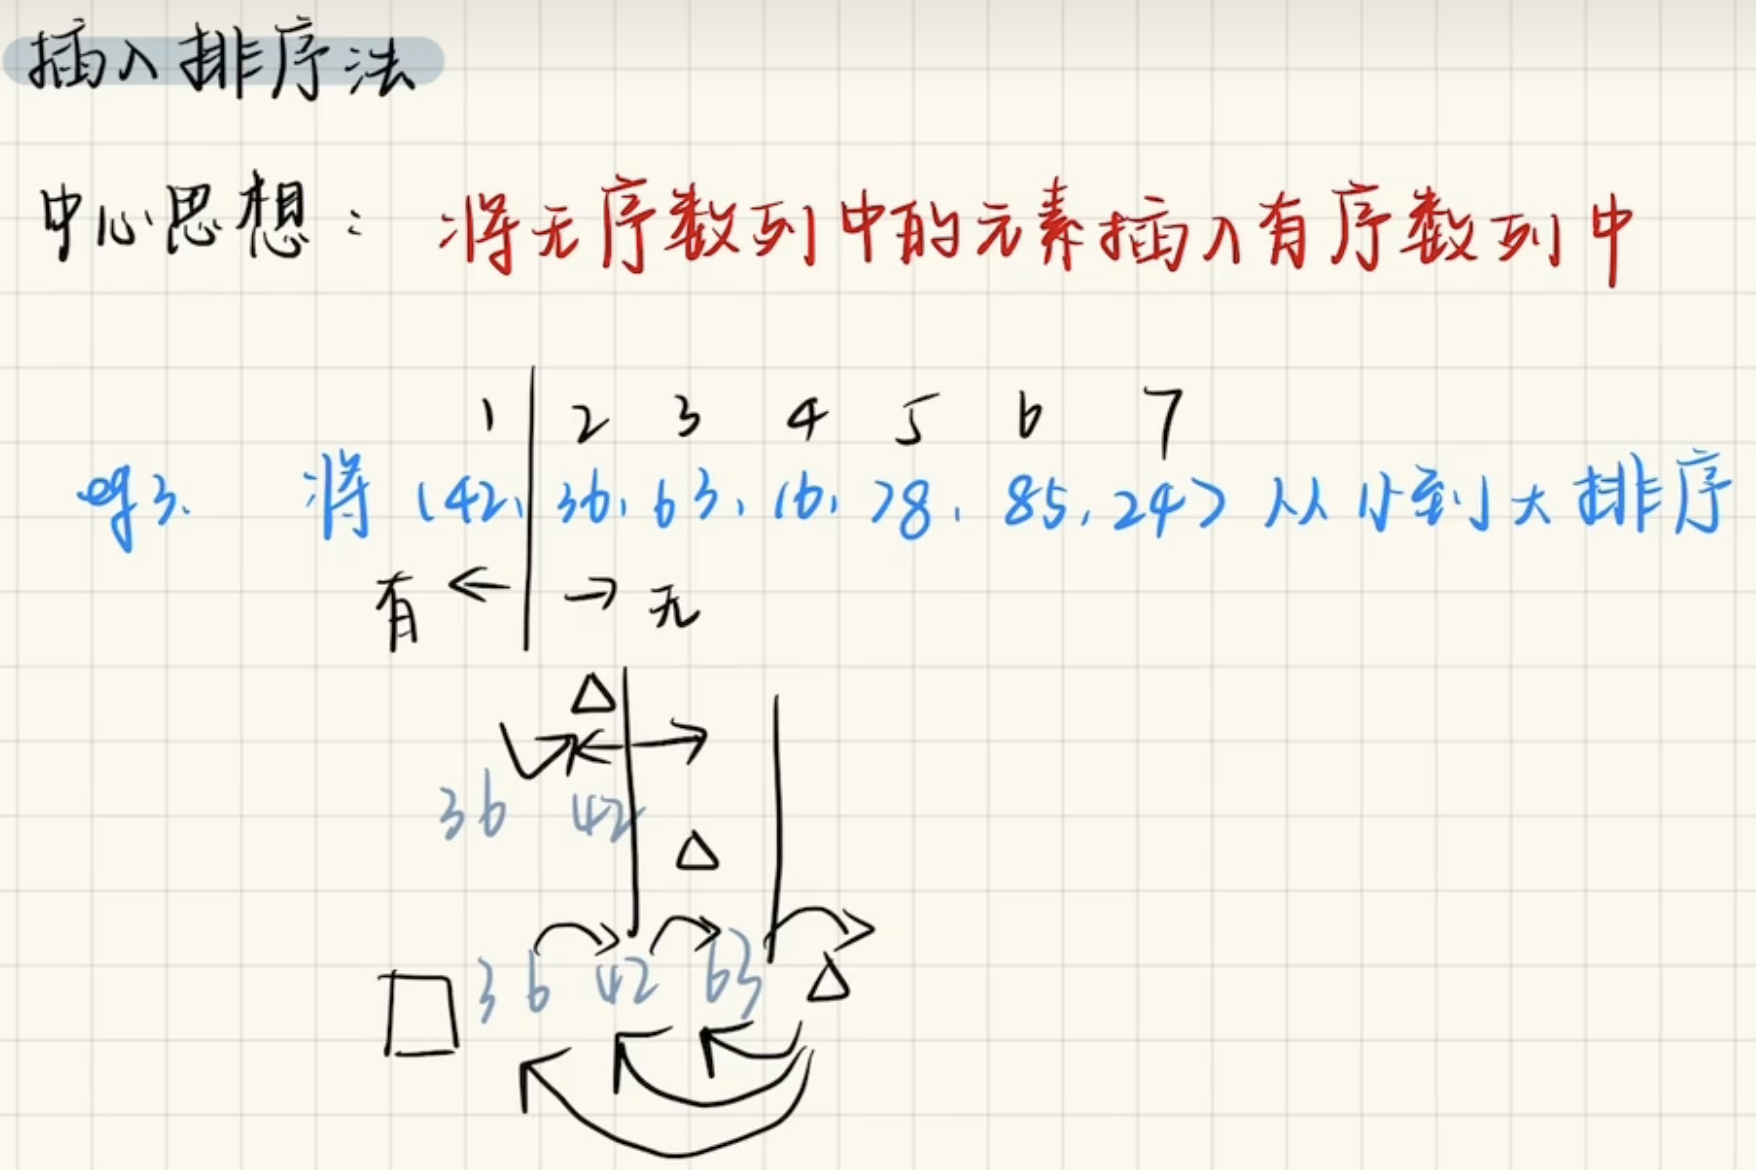 插入排序法
中心思想：将无序数列中的元素插入有序数列中
1 2 3 4 5 6 7
eg3. 将(42, 36, 63, 16, 78, 85, 24)从小到大排序
有 ← → 无
36 42
36 42 63